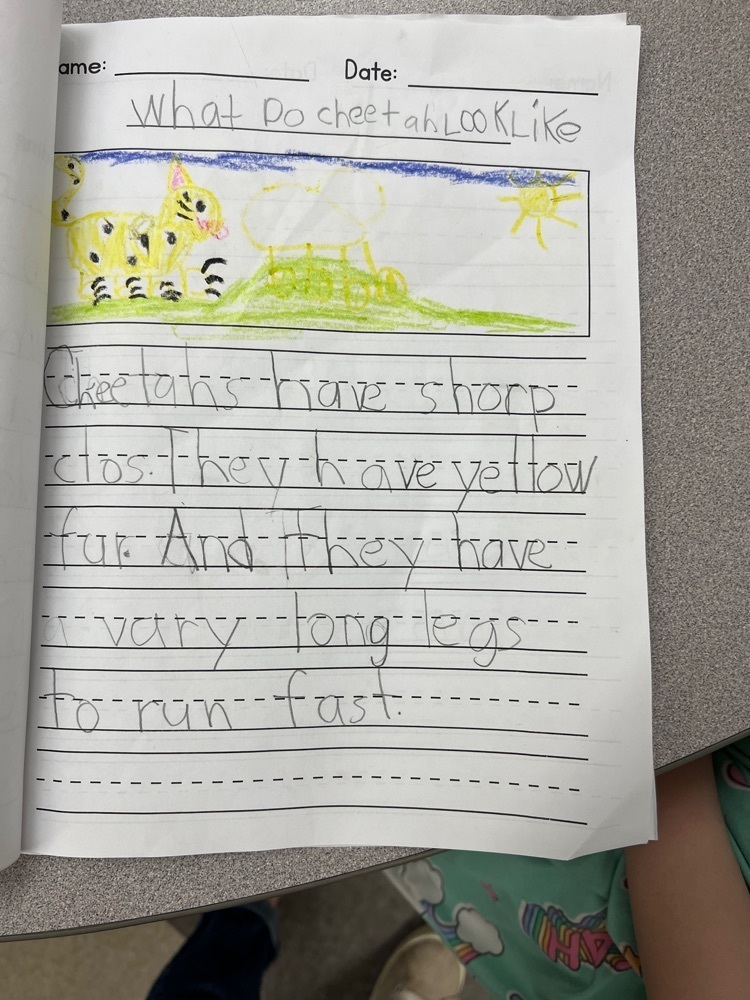 ame: Date:
What Do cheetah LOOK LiKe
Cheetahs have shorp
clos. They have yellow
fur. And They have
a vary long legs
to run fast.